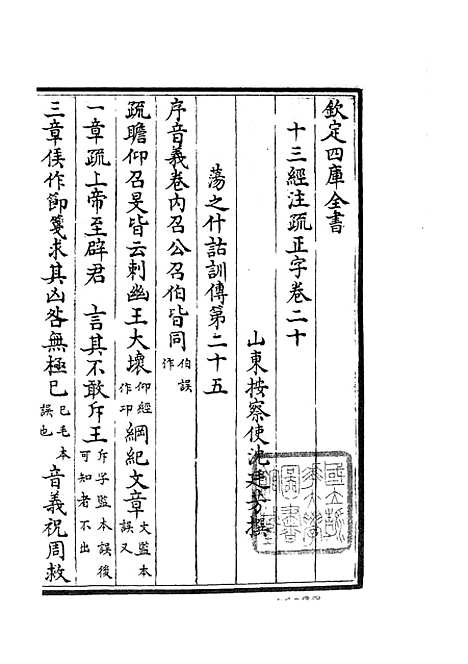 欽定四庫全書
十三經注疏正字卷二十
山東按察使沈廷芳撰
蕩之什詁訓傳第二十五
序音義卷內召公召伯皆同伯誤作
疏瞻仰召旻皆云刺幽王大壞仰經作卬綱紀文章文監本誤又
一章疏上帝至辟君 言其不敢斥王斥字監本誤後可知者不出
三章侯作節箋求其凶咎無極已已毛本誤也音義祝周救